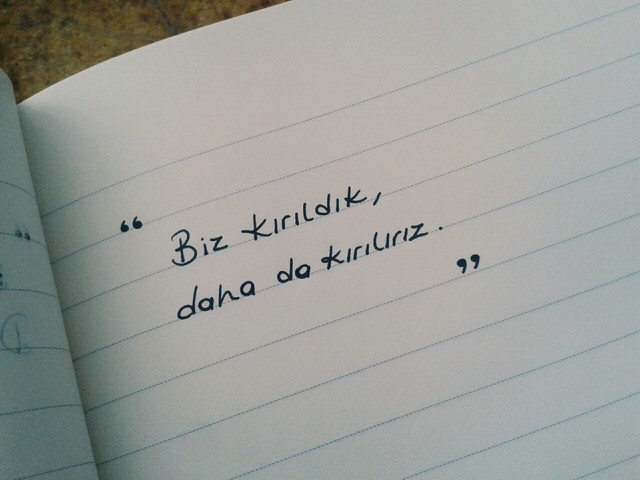 “ Biz kırıldık,
daha da kırılırız. ”